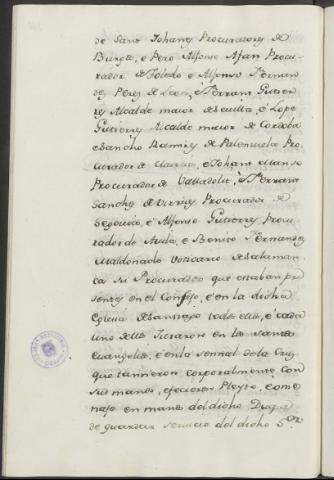 de Sant Johanes Procuradores de
Burgos, e Pero Alfonso Afan Procu-
rador de Toledo e Alfonso Fernan
des Peres de Leon, e Ferrant Gutier
res Alcalde maior de Sevilla, e Lope
Gutierres Alcalde maior de Cordoba
e Sancho Ramires de Palenzuela Pro
curador de Murcia, e Joham Manso
Procurador de Valladolit, e Ferrant
Sanches de Procurador de
Segovia, e Alfonso Gutierres Procu
rador de Avila, e Benito Fernandes
Maldonado Voticario de Salaman
ca su Procurador que estaban pre
sentes en el Consejo, e en la dicha
Eglesia de Santiago todos ellos, e cada
uno dellos Juraron en los santos
Euangelios, e en la sennal de la Cruz
que tannieron corporalmente con
sus manos, e ficieron Pleyto, e ome
naje en manos del dicho Duque
de guardar servicio del dicho S.or